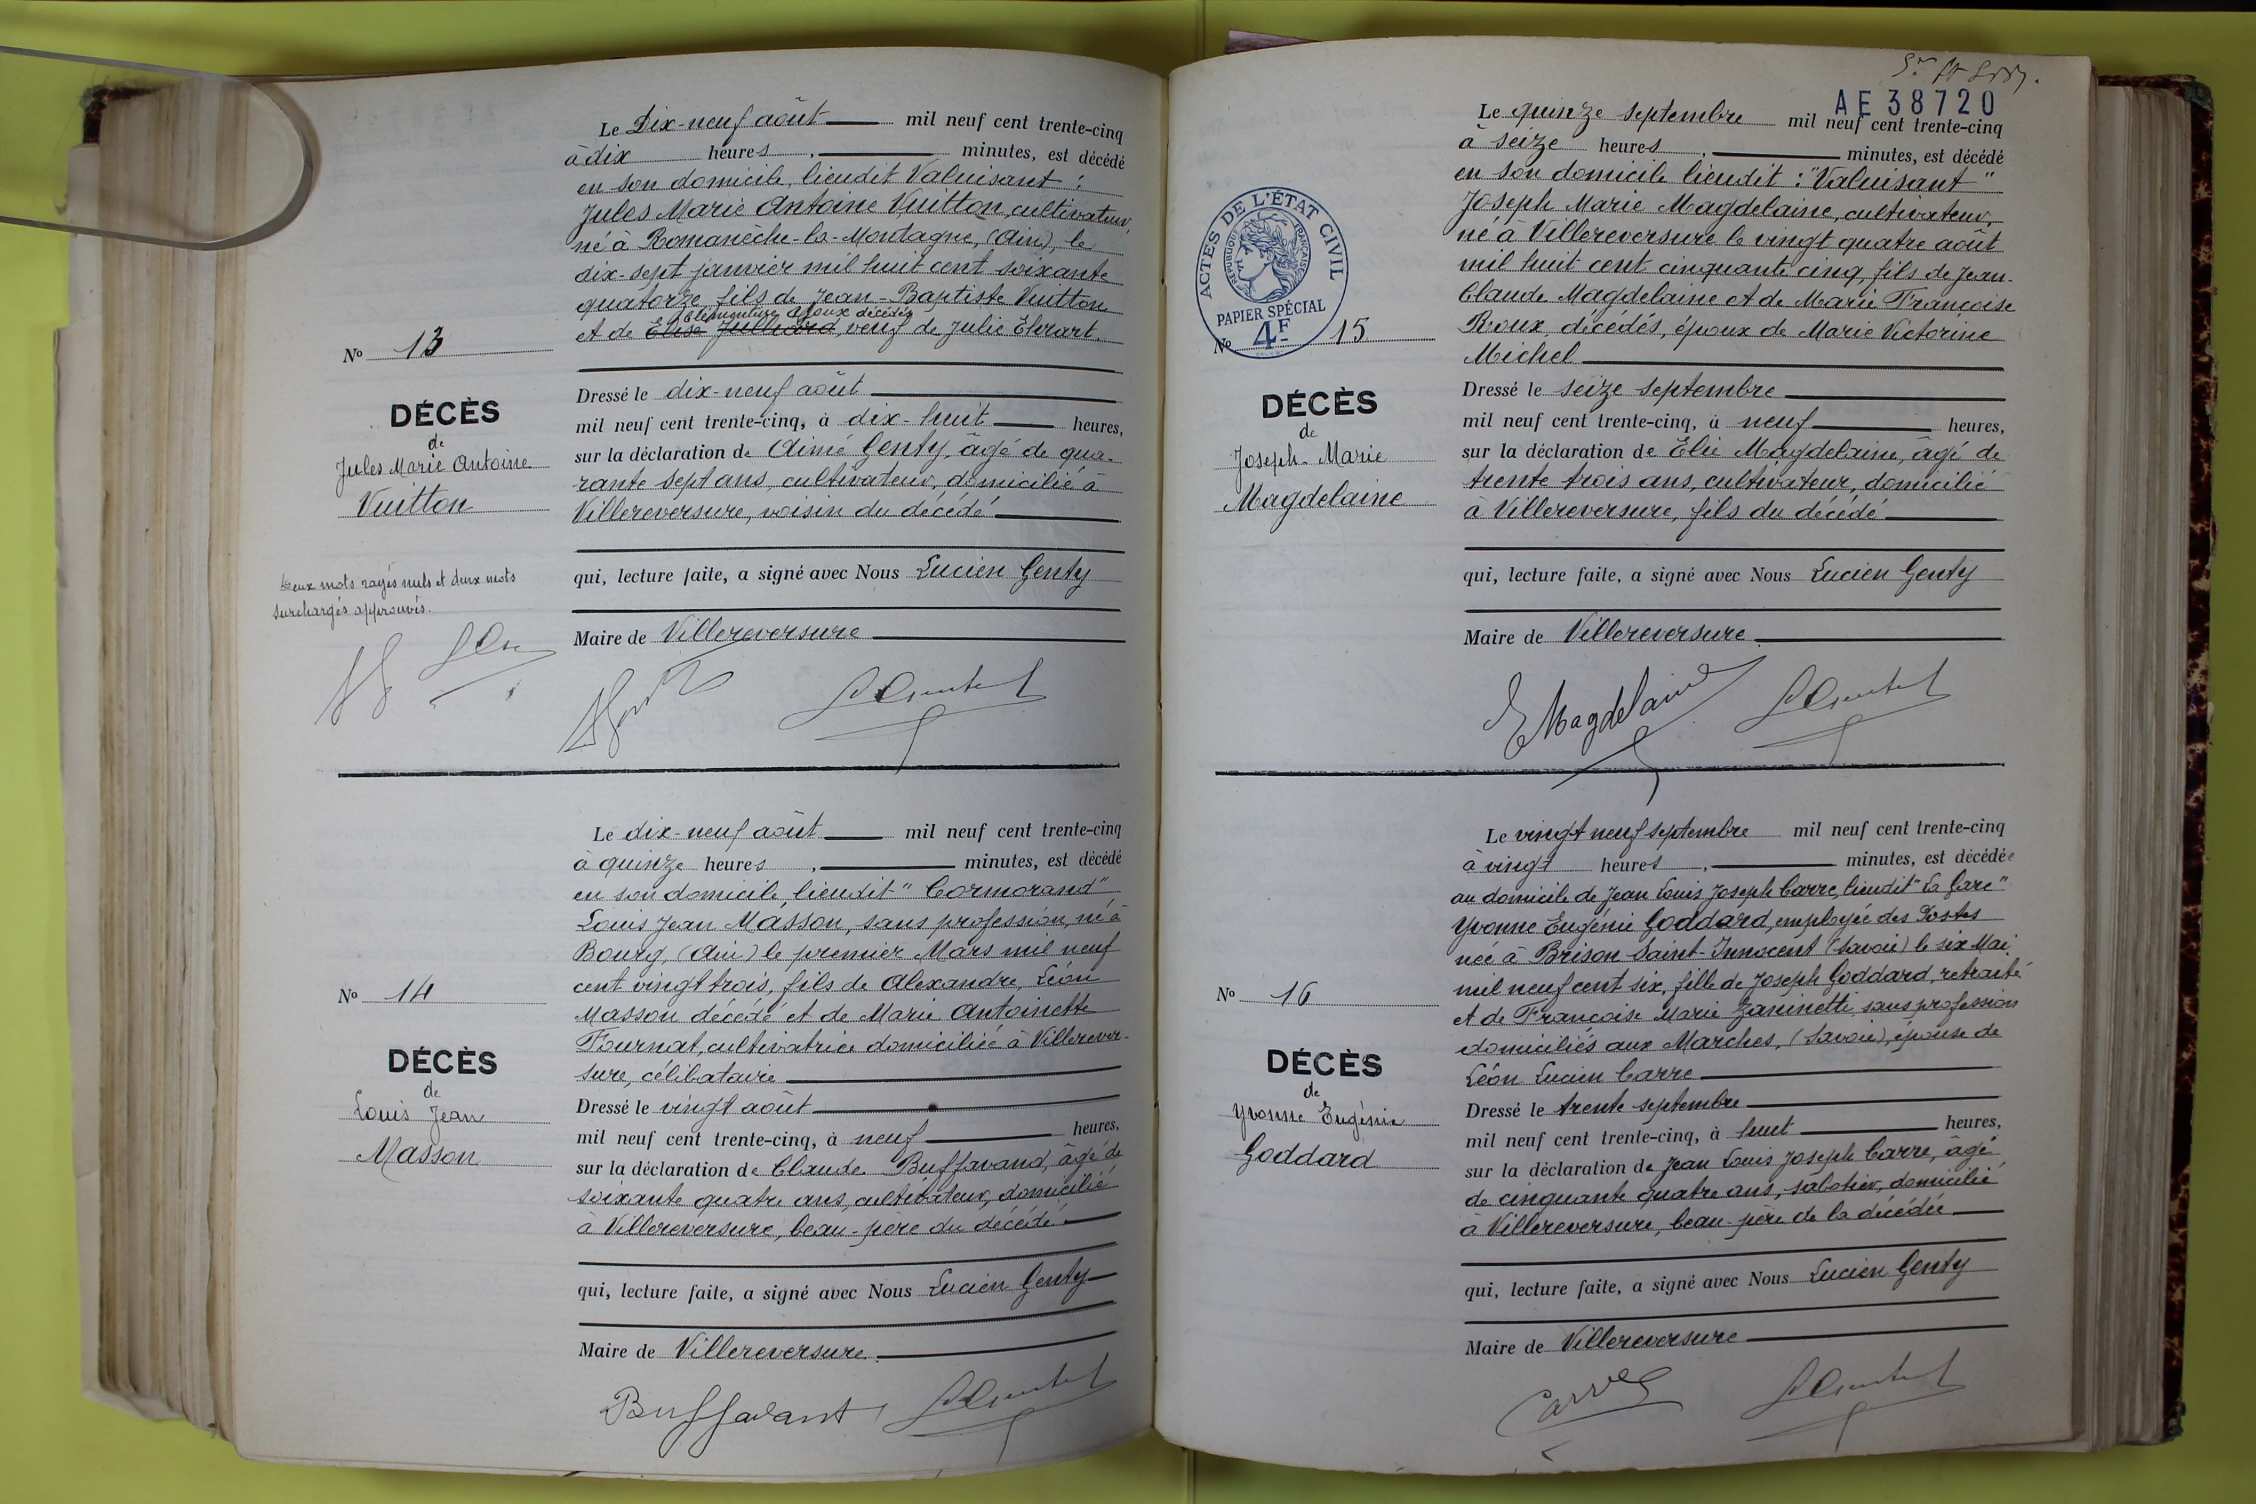 Le Dix-neuf août mil neuf cent trente-cinq
à dix heures, minutes, est décédé
en son domicile, lieudit Valuisant :
Jules Marie Antoine Vuitton, cultivateur,
né à Romanèche-la-Montagne, (Ain), le
dix-sept janvier mil huit cent soixante
quatorze, fils de Jean-Baptiste Vuitton
Clémentine décédés
et de Elise Julliard, veuf de Julie Elvrart.
No 13
DÉCÈS
de
Jules Marie Antoine
Vuitton
Deux mots rayés nuls et deux mots
surchargés approuvés.
Dressé le dix-neuf août
mil neuf cent trente-cinq, à dix-huit heures,
sur la déclaration de Aimé Genty, âgé de qua-
rante sept ans, cultivateur, domicilié à
Villereversure, voisin du décédé
qui, lecture faite, a signé avec Nous Lucien Genty
Maire de Villereversure
Le dix-neuf août mil neuf cent trente-cinq
à quinze heures, minutes, est décédé
en son domicile, lieudit "Cormorand"
Louis Jean Masson, sans profession, né à
Bourg, (Ain) le premier Mars mil neuf
cent vingt trois, fils de Alexandre, Léon
Masson décédé et de Marie Antoinette
Fournat, cultivatrice domiciliée à Villerever-
sure, célibataire
No 14
DÉCÈS
de
Louis Jean
Masson
Dressé le vingt août
mil neuf cent trente-cinq, à neuf heures,
sur la déclaration de Claude Buffavand, âgé de
soixante quatre ans, cultivateur, domicilié
à Villereversure, beau-père du décédé
qui, lecture faite, a signé avec Nous Lucien Genty
Maire de Villereversure
Buffavant
AE 38720
Le quinze septembre mil neuf cent trente-cinq
à seize heures, minutes, est décédé
en son domicile lieudit : "Valuisant"
Joseph Marie Magdelaine, cultivateur,
né à Villereversure le vingt quatre août
mil huit cent cinquante cinq, fils de Jean-
Claude Magdelaine et de Marie Françoise
Roux, décédés, époux de Marie Victorine
Michel
ACTES DE L'ÉTAT CIVIL
RÉPUBLIQUE FRANÇAISE
PAPIER SPÉCIAL
4F
No 15
DÉCÈS
de
Joseph-Marie
Magdelaine
Dressé le seize septembre
mil neuf cent trente-cinq, à neuf heures,
sur la déclaration de Elie Magdelaine, âgé de
trente trois ans, cultivateur, domicilié
à Villereversure, fils du décédé
qui, lecture faite, a signé avec Nous Lucien Genty
Maire de Villereversure
E Magdelaine
Le vingt neuf septembre mil neuf cent trente-cinq
à vingt heures, minutes, est décédée
au domicile de Jean Louis Joseph Carre, lieudit "La Gare"
Yvonne Eugénie Goddard, employée des Postes
née à Brison-Saint-Innocent (Savoie) le six Mai
mil neuf cent six, fille de Joseph Goddard, retraité
et de Françoise Marie Zaninetti, sans profession
domiciliés aux Marches, (Savoie), épouse de
Léon Lucien Carre
No 16
DÉCÈS
de
Yvonne Eugénie
Goddard
Dressé le trente septembre
mil neuf cent trente-cinq, à huit heures,
sur la déclaration de Jean Louis Joseph Carre, âgé
de cinquante quatre ans, sabotier, domicilié
à Villereversure, beau-père de la décédée
qui, lecture faite, a signé avec Nous Lucien Genty
Maire de Villereversure
Carre